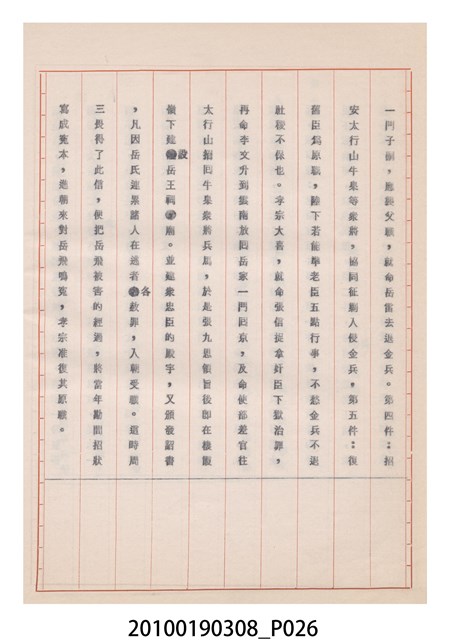 一門子嗣，應襲父職，就命岳雷去退金兵。第四件：招
安太行山牛皐等眾將，協同征勦入侵金兵，第五件：復
舊臣爲原職，陛下若能準老臣五點行事，不愁金兵不退
社稷不保也。孝宗大喜，就命張信提拿奸臣下獄治罪，
再命李文升到雲南放回岳家一門回京，及命使部差官往
太行山招回牛皐眾將兵馬，於是張九恩領旨後即在棲霞
嶺下建設岳王祠廟。並建眾忠臣的殿宇，又頒發詔書
，凡因岳氏連累諸人在逃者各赦罪，入朝受職。這時周
三畏得了此信，便把岳飛被害的經過，將當年勘問招狀
寫成冤本，進朝來對岳飛鳴冤，孝宗准復其原職。
20100190308_P026